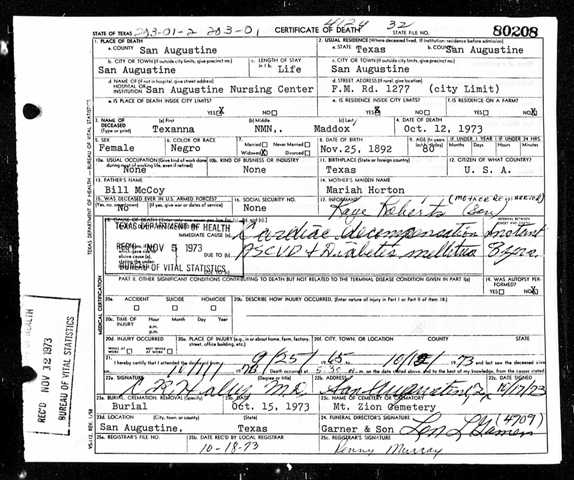 4124 32
STATE OF TEXAS 203-01-2 203-01 CERTIFICATE OF DEATH 80208
1. PLACE OF DEATH 2. USUAL RESIDENCE (Where deceased lived. If institution: residence before admission)
a. COUNTY San Augustine a. STATE Texas b. COUNTY San Augustine
b. CITY OR TOWN (If outside city limits, give precinct no.) c. LENGTH OF STAY in 1b. c. CITY OR TOWN (If outside city limits, give precinct no.)
San Augustine Life San Augustine
d. NAME OF (If not in hospital, give street address) d. STREET ADDRESS (If rural, give location)
HOSPITAL OR INSTITUTION San Augustine Nursing Center F.M. Rd. 1277 (city Limit)
e. IS PLACE OF DEATH INSIDE CITY LIMITS? e. IS RESIDENCE INSIDE CITY LIMITS? f. IS RESIDENCE ON A FARM?
YES NO YES NO YES NO
3. NAME OF DECEASED (Type or print) (a) First (b) Middle (c) Last 4. DATE OF DEATH
Texanna NMN.. Maddox Oct. 12, 1973
5. SEX 6. COLOR OR RACE 7. Married Never Married 8. DATE OF BIRTH 9. AGE IF UNDER 1 YEAR IF UNDER 24 HRS.
Female Negro Widowed Divorced Nov.25, 1892 80 Months Days Hours Minutes
10a. USUAL OCCUPATION (Give kind of work done 10b. KIND OF BUSINESS OR INDUSTRY 11. BIRTHPLACE (State or foreign country) 12. CITIZEN OF WHAT COUNTRY?
None None Texas U. S. A.
13. FATHER'S NAME 14. MOTHER'S MAIDEN NAME
Bill McCoy Mariah Horton
15. WAS DECEASED EVER IN U.S. ARMED FORCES? 16. SOCIAL SECURITY NO. 17. INFORMANT
(Yes, no, or unknown) (If yes, give war or dates of service)
No None Kaye Roberts
TEXAS DEPARTMENT OF HEALTH
REC'D NOV 5 1973
BUREAU OF VITAL STATISTICS
IMMEDIATE CAUSE (a) Cardiac decompensation instant
ASCVD & Diabetes mellitus 8 yrs.
PART II. OTHER SIGNIFICANT CONDITIONS CONTRIBUTING TO DEATH BUT NOT RELATED TO THE TERMINAL DISEASE CONDITION GIVEN IN PART I(a) 19. WAS AUTOPSY PERFORMED?
YES NO
20a. ACCIDENT SUICIDE HOMICIDE 20b. DESCRIBE HOW INJURY OCCURRED. (Enter nature of injury in Part I or Part II of item 18.)
20c. TIME OF INJURY Hour Month Day Year
20d. INJURY OCCURRED 20e. PLACE OF INJURY (e.g., in or about home, farm, factory, street, office building, etc.) 20f. CITY, TOWN, OR LOCATION COUNTY STATE
21. I hereby certify that I attended the deceased from 9/25/ 65
22a. SIGNATURE (Degree or title) 22b. ADDRESS 22c. DATE SIGNED
San Augustine
23a. BURIAL, CREMATION, REMOVAL (Specify) 23b. DATE 23c. NAME OF CEMETERY OR CREMATORY
Burial Oct. 15, 1973 Mt. Zion Cemetery
23d. LOCATION (City, town, or county) (State) 24. FUNERAL DIRECTOR'S SIGNATURE (4709)
San Augustine. Texas Garner & Son
25a. REGISTRAR'S FILE NO. 25b. DATE REC'D BY LOCAL REGISTRAR 25c. REGISTRAR'S SIGNATURE
10-18-73 Murray
TEXAS DEPARTMENT OF HEALTH - BUREAU OF VITAL STATISTICS
MEDICAL CERTIFICATION
REC'D NOV 12 1973
BUREAU OF VITAL STATISTICS